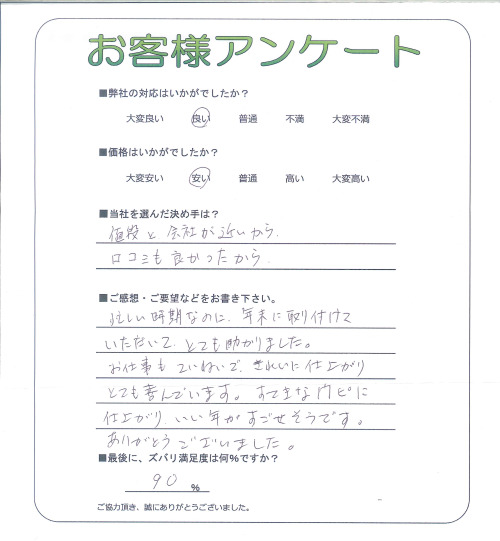 お客様アンケート
■弊社の対応はいかがでしたか?
大変良い 良い 普通 不満 大変不満
■価格はいかがでしたか?
大変安い 安い 普通 高い 大変高い
■当社を選んだ決め手は?
値段と会社が近いから
口コミも良かったから
■ご感想・ご要望などをお書き下さい。
忙しい時期なのに、年末に取り付けて
いただいて、とても助かりました。
お仕事もていねいで、きれいに仕上がり
とても喜んでいます。すてきなWピに
仕上がり、いい年がすごせそうです。
ありがとうございました。
■最後に、ズバリ満足度は何%ですか?
90 %
ご協力頂き、誠にありがとうございました。